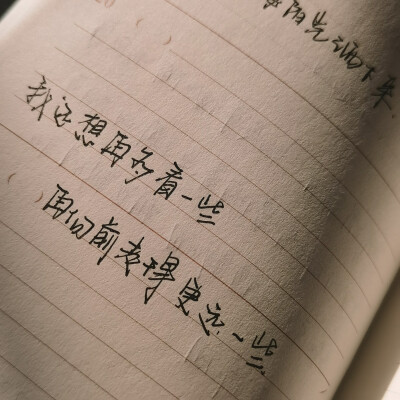 阳光洒下来
我还想再多看一些
再向前走得更远一些